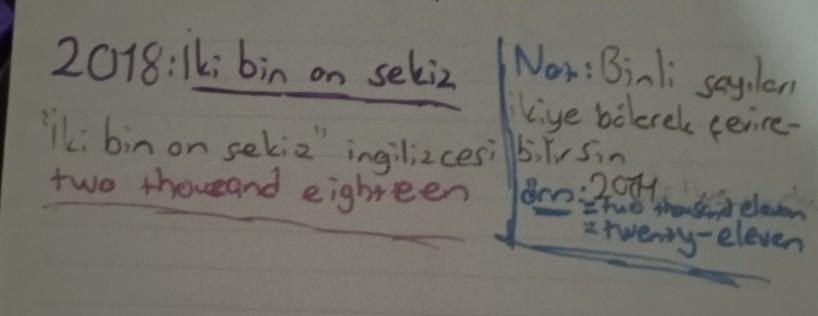 2018: İki bin on sekiz
"İki bin on sekiz" ingilizcesi
two thousand eighteen
Not: Binli sayıları
ikiye bölerek çevire-
bilirsin
örn: 2011
= two thousand eleven
= twenty-eleven